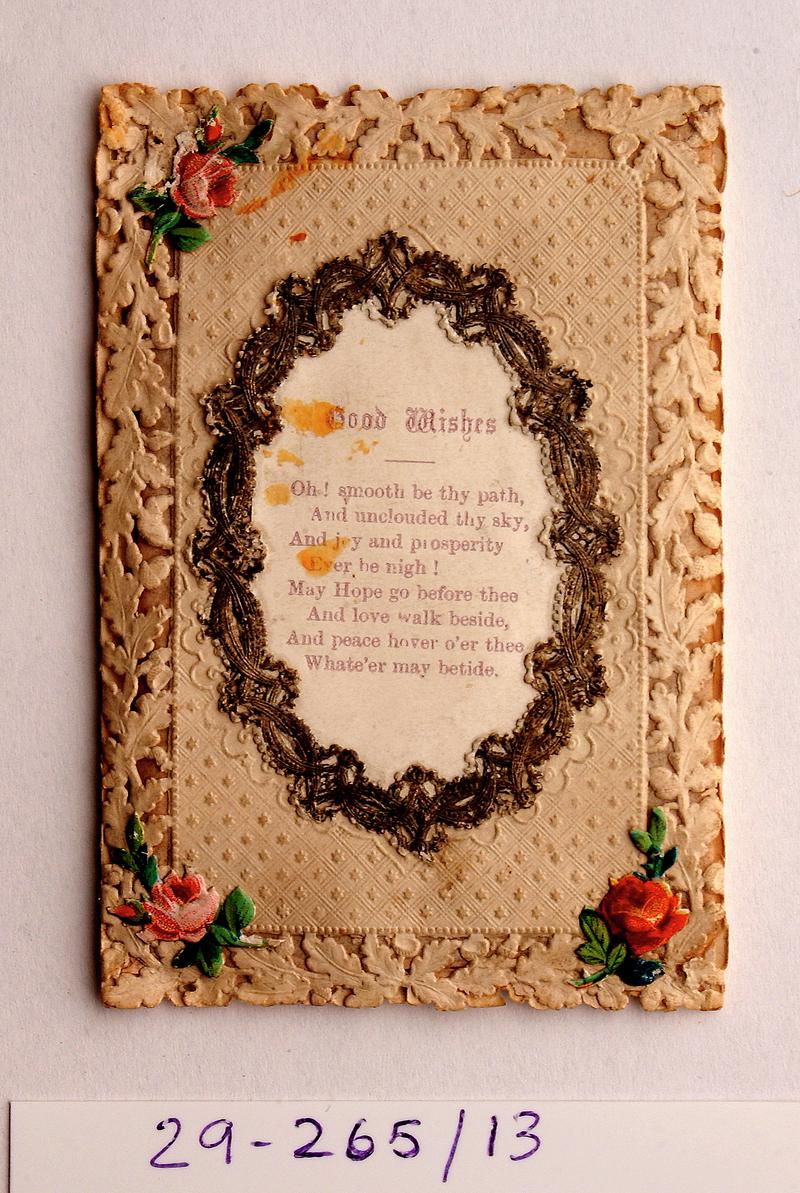 Good Wishes
Oh! smooth be thy path,
And unclouded thy sky,
And joy and prosperity
Ever be nigh!
May Hope go before thee
And love walk beside,
And peace hover o'er thee
Whate'er may betide.
29-265/13